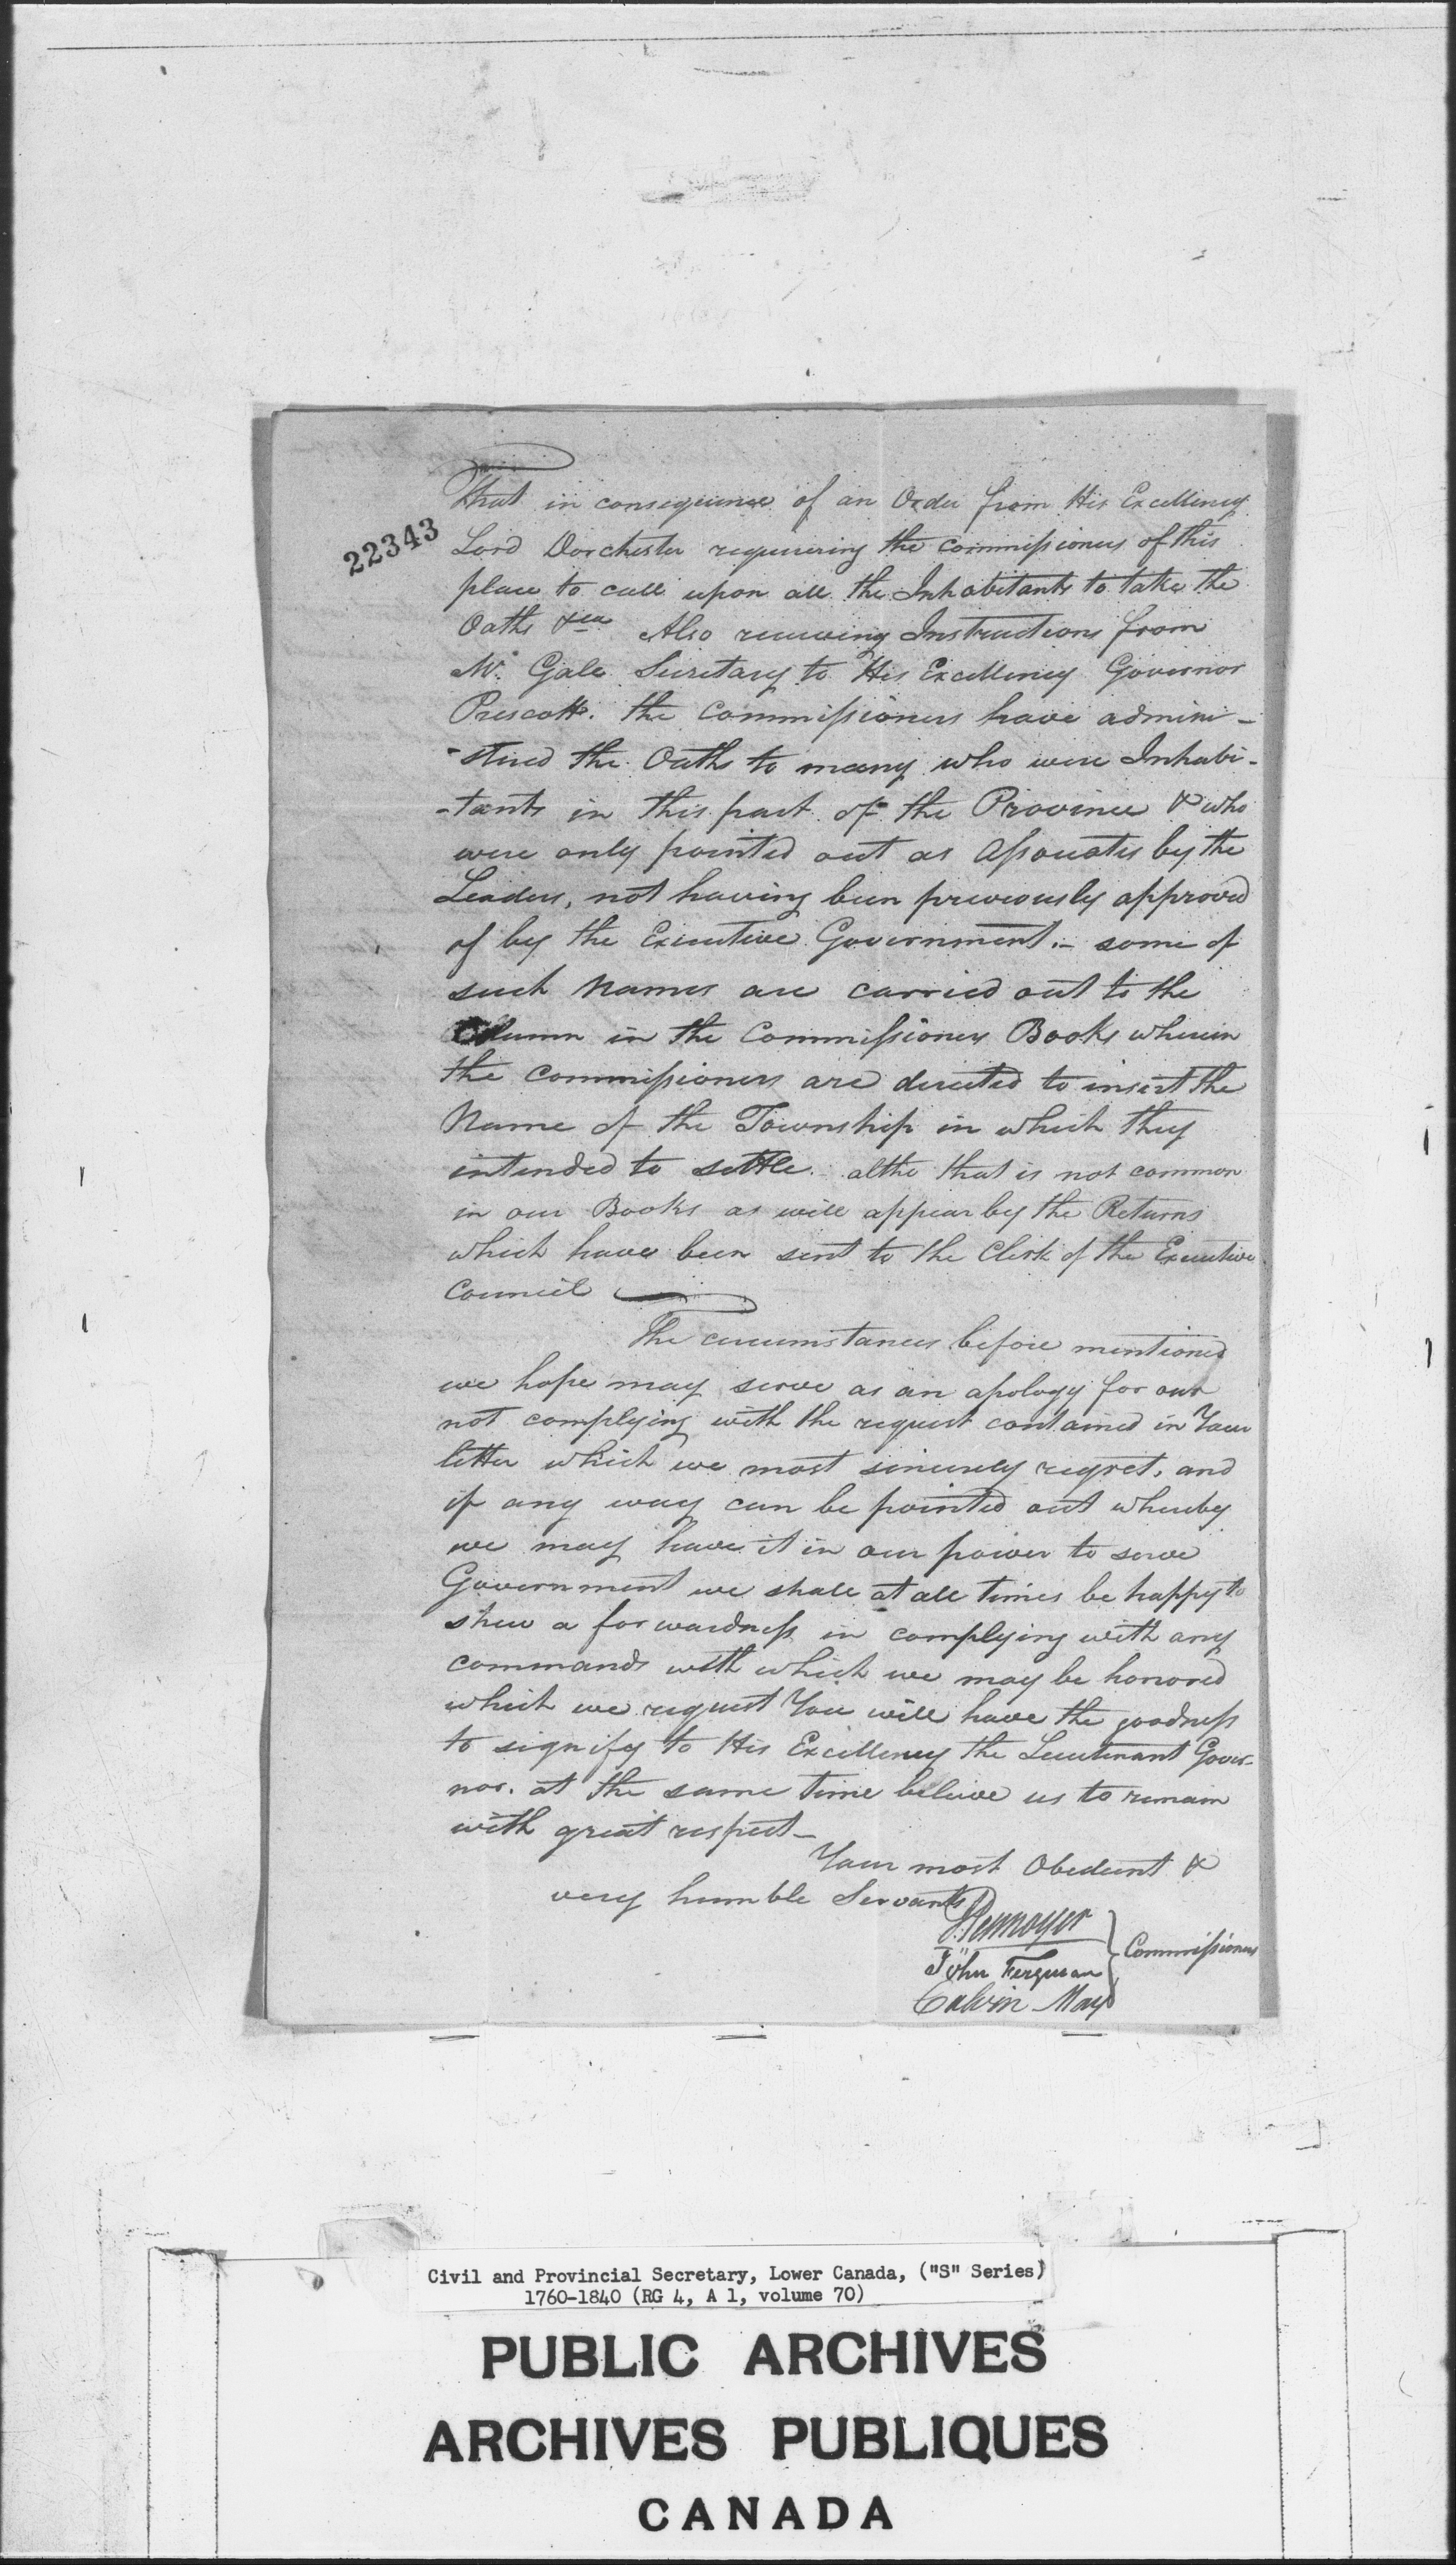 22343
That in consequence of an Order from His Excellency
Lord Dorchester requiering the commissioners of this
place to call upon all the Inhabitants to take the
Oaths &ca Also receiving Instructions from
Mr. Gale Secretary to His Excellency Governor
Prescott. the Commissioners have admini-
-stred the Oaths to many who were Inhabi-
-tants in this part of the Province & who
were only pointed out as Associates by the
Leaders, not having been previously approved
of by the Executive Government.- some of
such Names are carried out to the
Column in the Commissioners Books wherein
the Commissioners are directed to insert the
Name of the Township in which they
intended to settle. altho that is not common
in our Books as will appear by the Returns
which have been sent to the Clerk of the Executive
Council
The circumstances before mentioned
we hope may serve as an apology for our
not complying with the request contained in Your
letter which we most sincerely regret, and
if any way can be pointed out whereby
we may have it in our power to serve
Government we shall at all times be happy to
shew a forwardness in complying with any
commands with which we may be honored
which we request You will have the goodness
to signify to His Excellency the Lieutenant Gover-
nor. at the same time believe us to remain
with great respect-
Your most Obedient &
very humble Servants
J. Pennoyer
John Ferguson
Commissioners
Calvin May
Civil and Provincial Secretary, Lower Canada, ("S" Series)
1760-1840 (RG 4, A 1, volume 70)
PUBLIC ARCHIVES
ARCHIVES PUBLIQUES
CANADA